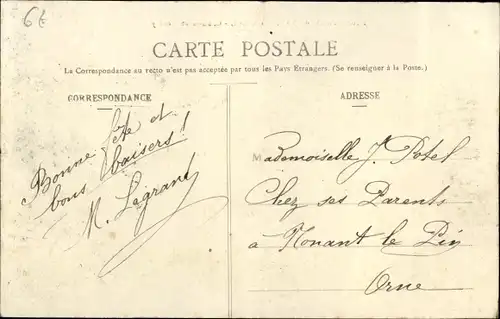 6€
CARTE POSTALE
La Correspondance au recto n'est pas acceptée par tous les Pays Étrangers. (Se renseigner à la Poste.)
CORRESPONDANCE
Bonne fête et
bons baisers !
M. Legrand
ADRESSE
Mademoiselle J. Potel
Chez ses Parents
à Nonant le Pin
Orne